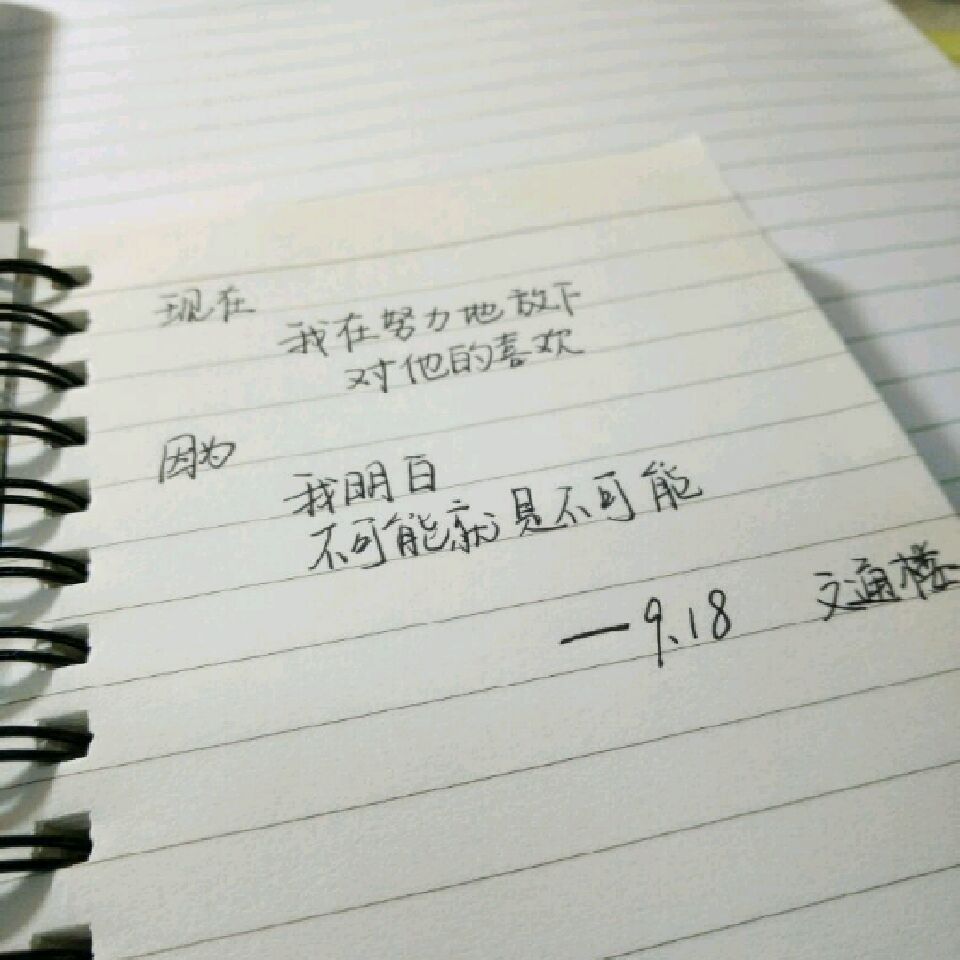 现在
我在努力地放下
对他的喜欢
因为
我明白
不可能就是不可能
—9.18 交通楼